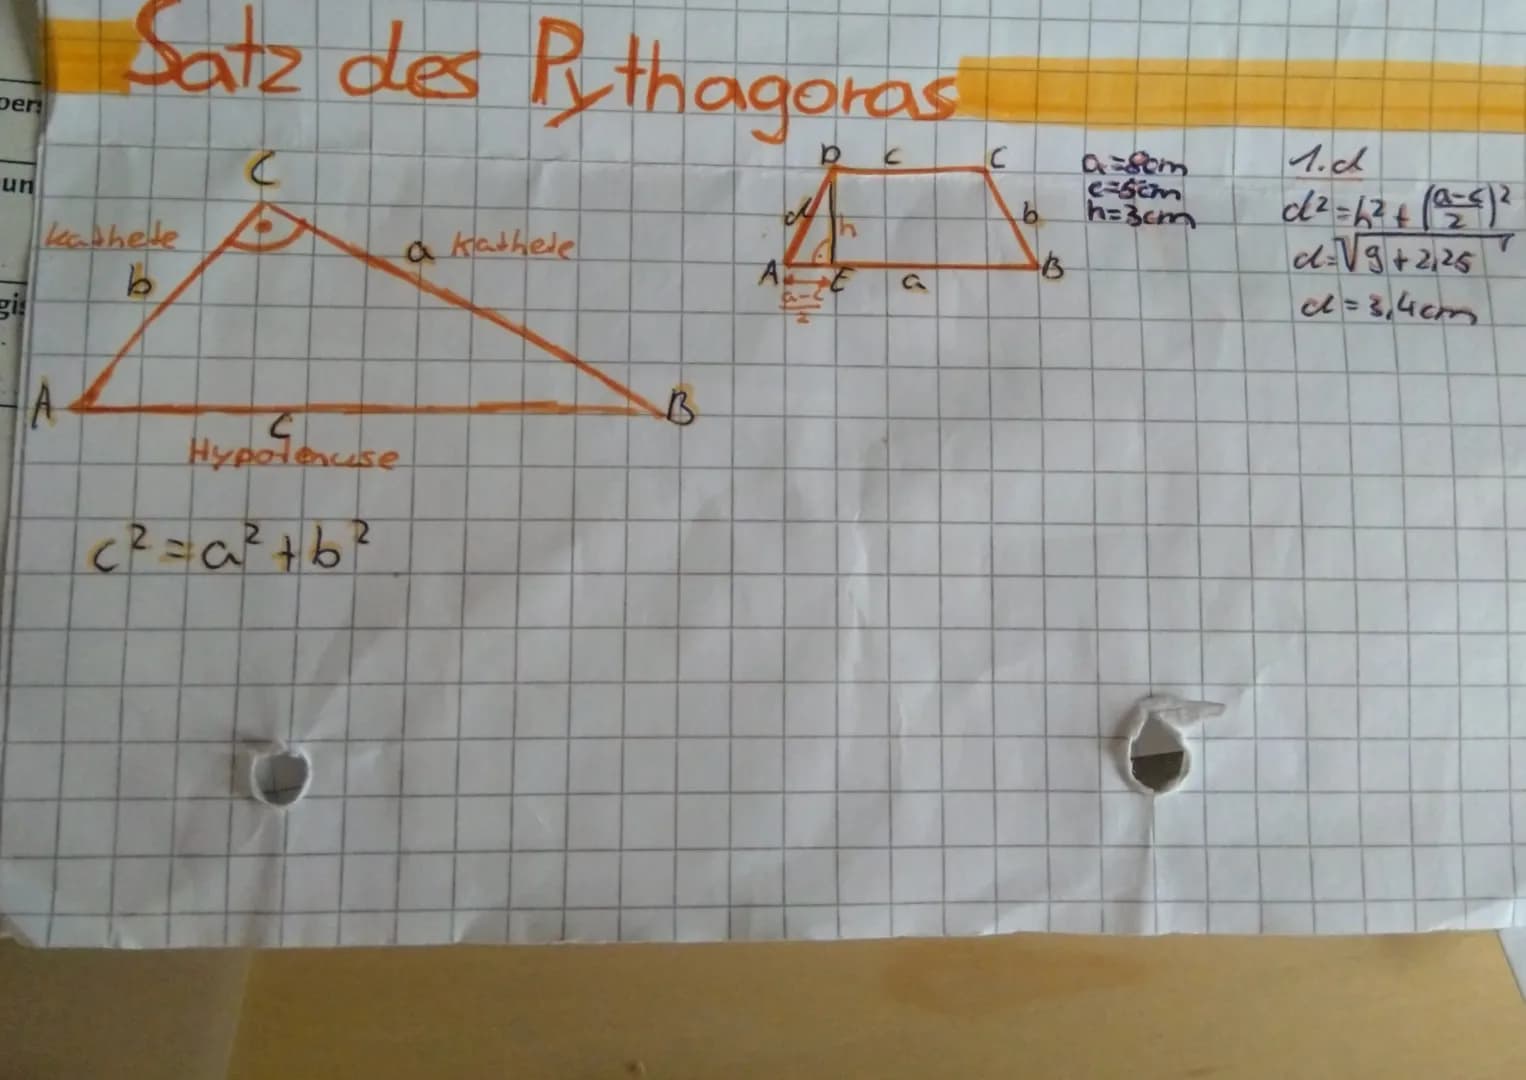 Satz des Pythagoras
C
Kathete
b
a Kathete
A
B
c
Hypotenuse
c² = a² + b²
D c C
d h b
A E a B
a-c/2
a=8cm
c=5cm
h=3cm
1. d
d² = h² + (a-c/2)²
d = √9 + 2,25
d = 3,4cm